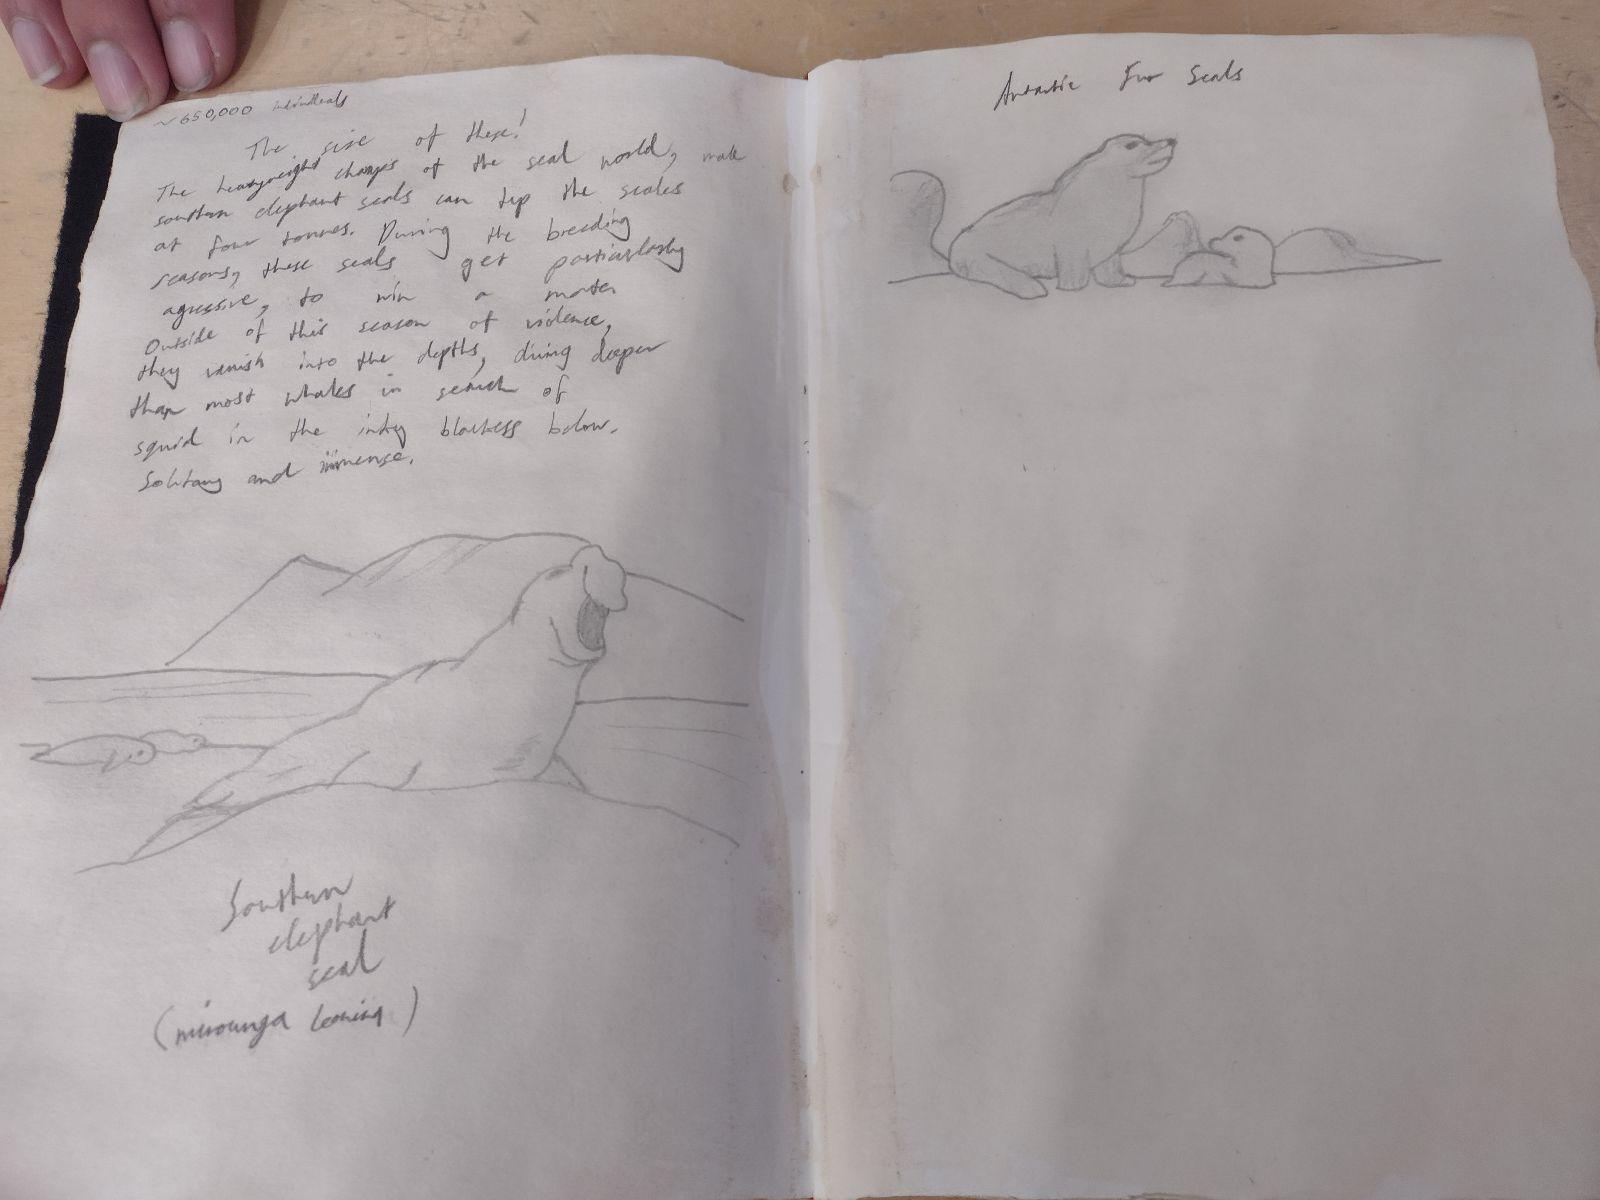 ~650,000 individuals
The size of these!
The heavyweight champs of the seal world, male
southern elephant seals can tip the scales
at four tonnes. During the breeding
seasons, these seals get particularly
agressive, to win a mate.
Outside of this season of violence,
they vanish into the depths, diving deeper
than most whales in search of
squid in the inky blackness below.
Solitary and immense.
Southern
elephant
seal
(mirounga leonina)
Antarctic Fur Seals